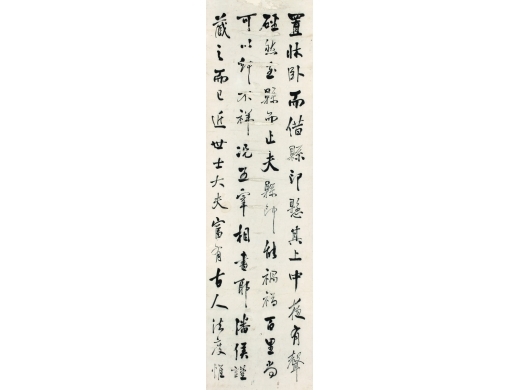 置牀卧而借縣印懸其上中夜有聲
硿然至縣而止夫縣印能禍福百里尚
可以辟不祥況五宰相書耶潘侯謹
藏之而已近世士大夫富有古人法度惟